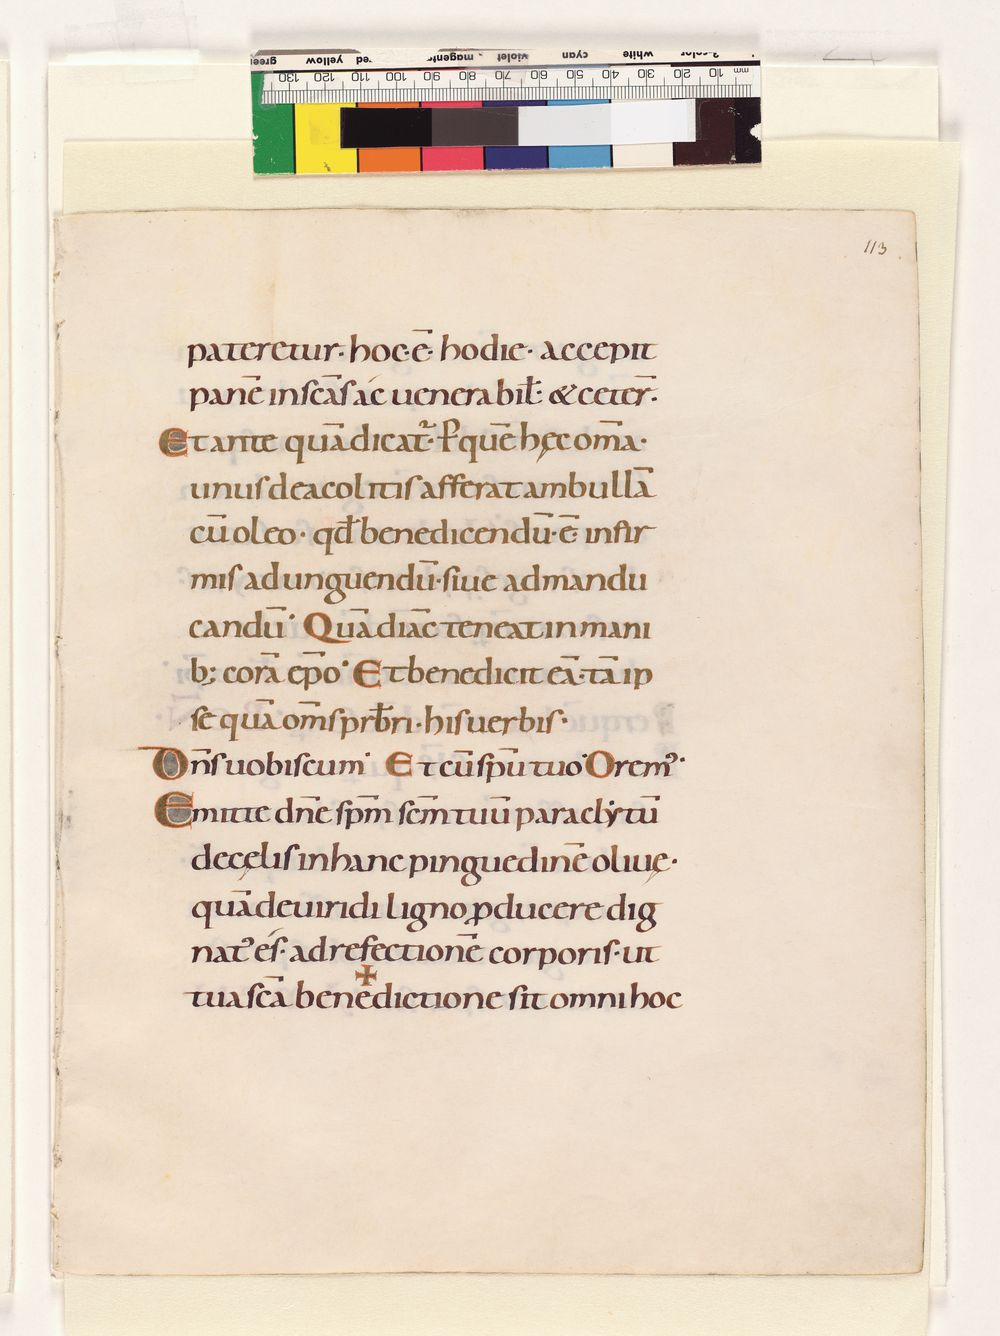 113
pateretur· hoc·ē· hodie· accepit
panē in scās ac uenerabił: & ceter̄·
Et ante quā dicat᷑· P̄ quē hęc om̄a·
unus de acolitis afferat ambullā
cū oleo· qđ benedicendū·ē· infir
mis ad unguendū· siue ad mandu
candū· Quā diac̄ teneat in mani
b; corā ep̄o· Et benedicit eā· tā ip
se quā om̄s prb̄ri· his uerbis·
Dn̄s uobiscum· Et cū sp̄u tuo· Orem᾿·
Emitte dn̄e sp̄m sc̄m tuū paraclẏtū
de cęlis in hanc pinguedinē oliuę·
quā de uiridi ligno ꝓducere dig
nat᾿ és· ad refectionē corporis· ut
tua sc̄a bene✠dictione sit omni hoc